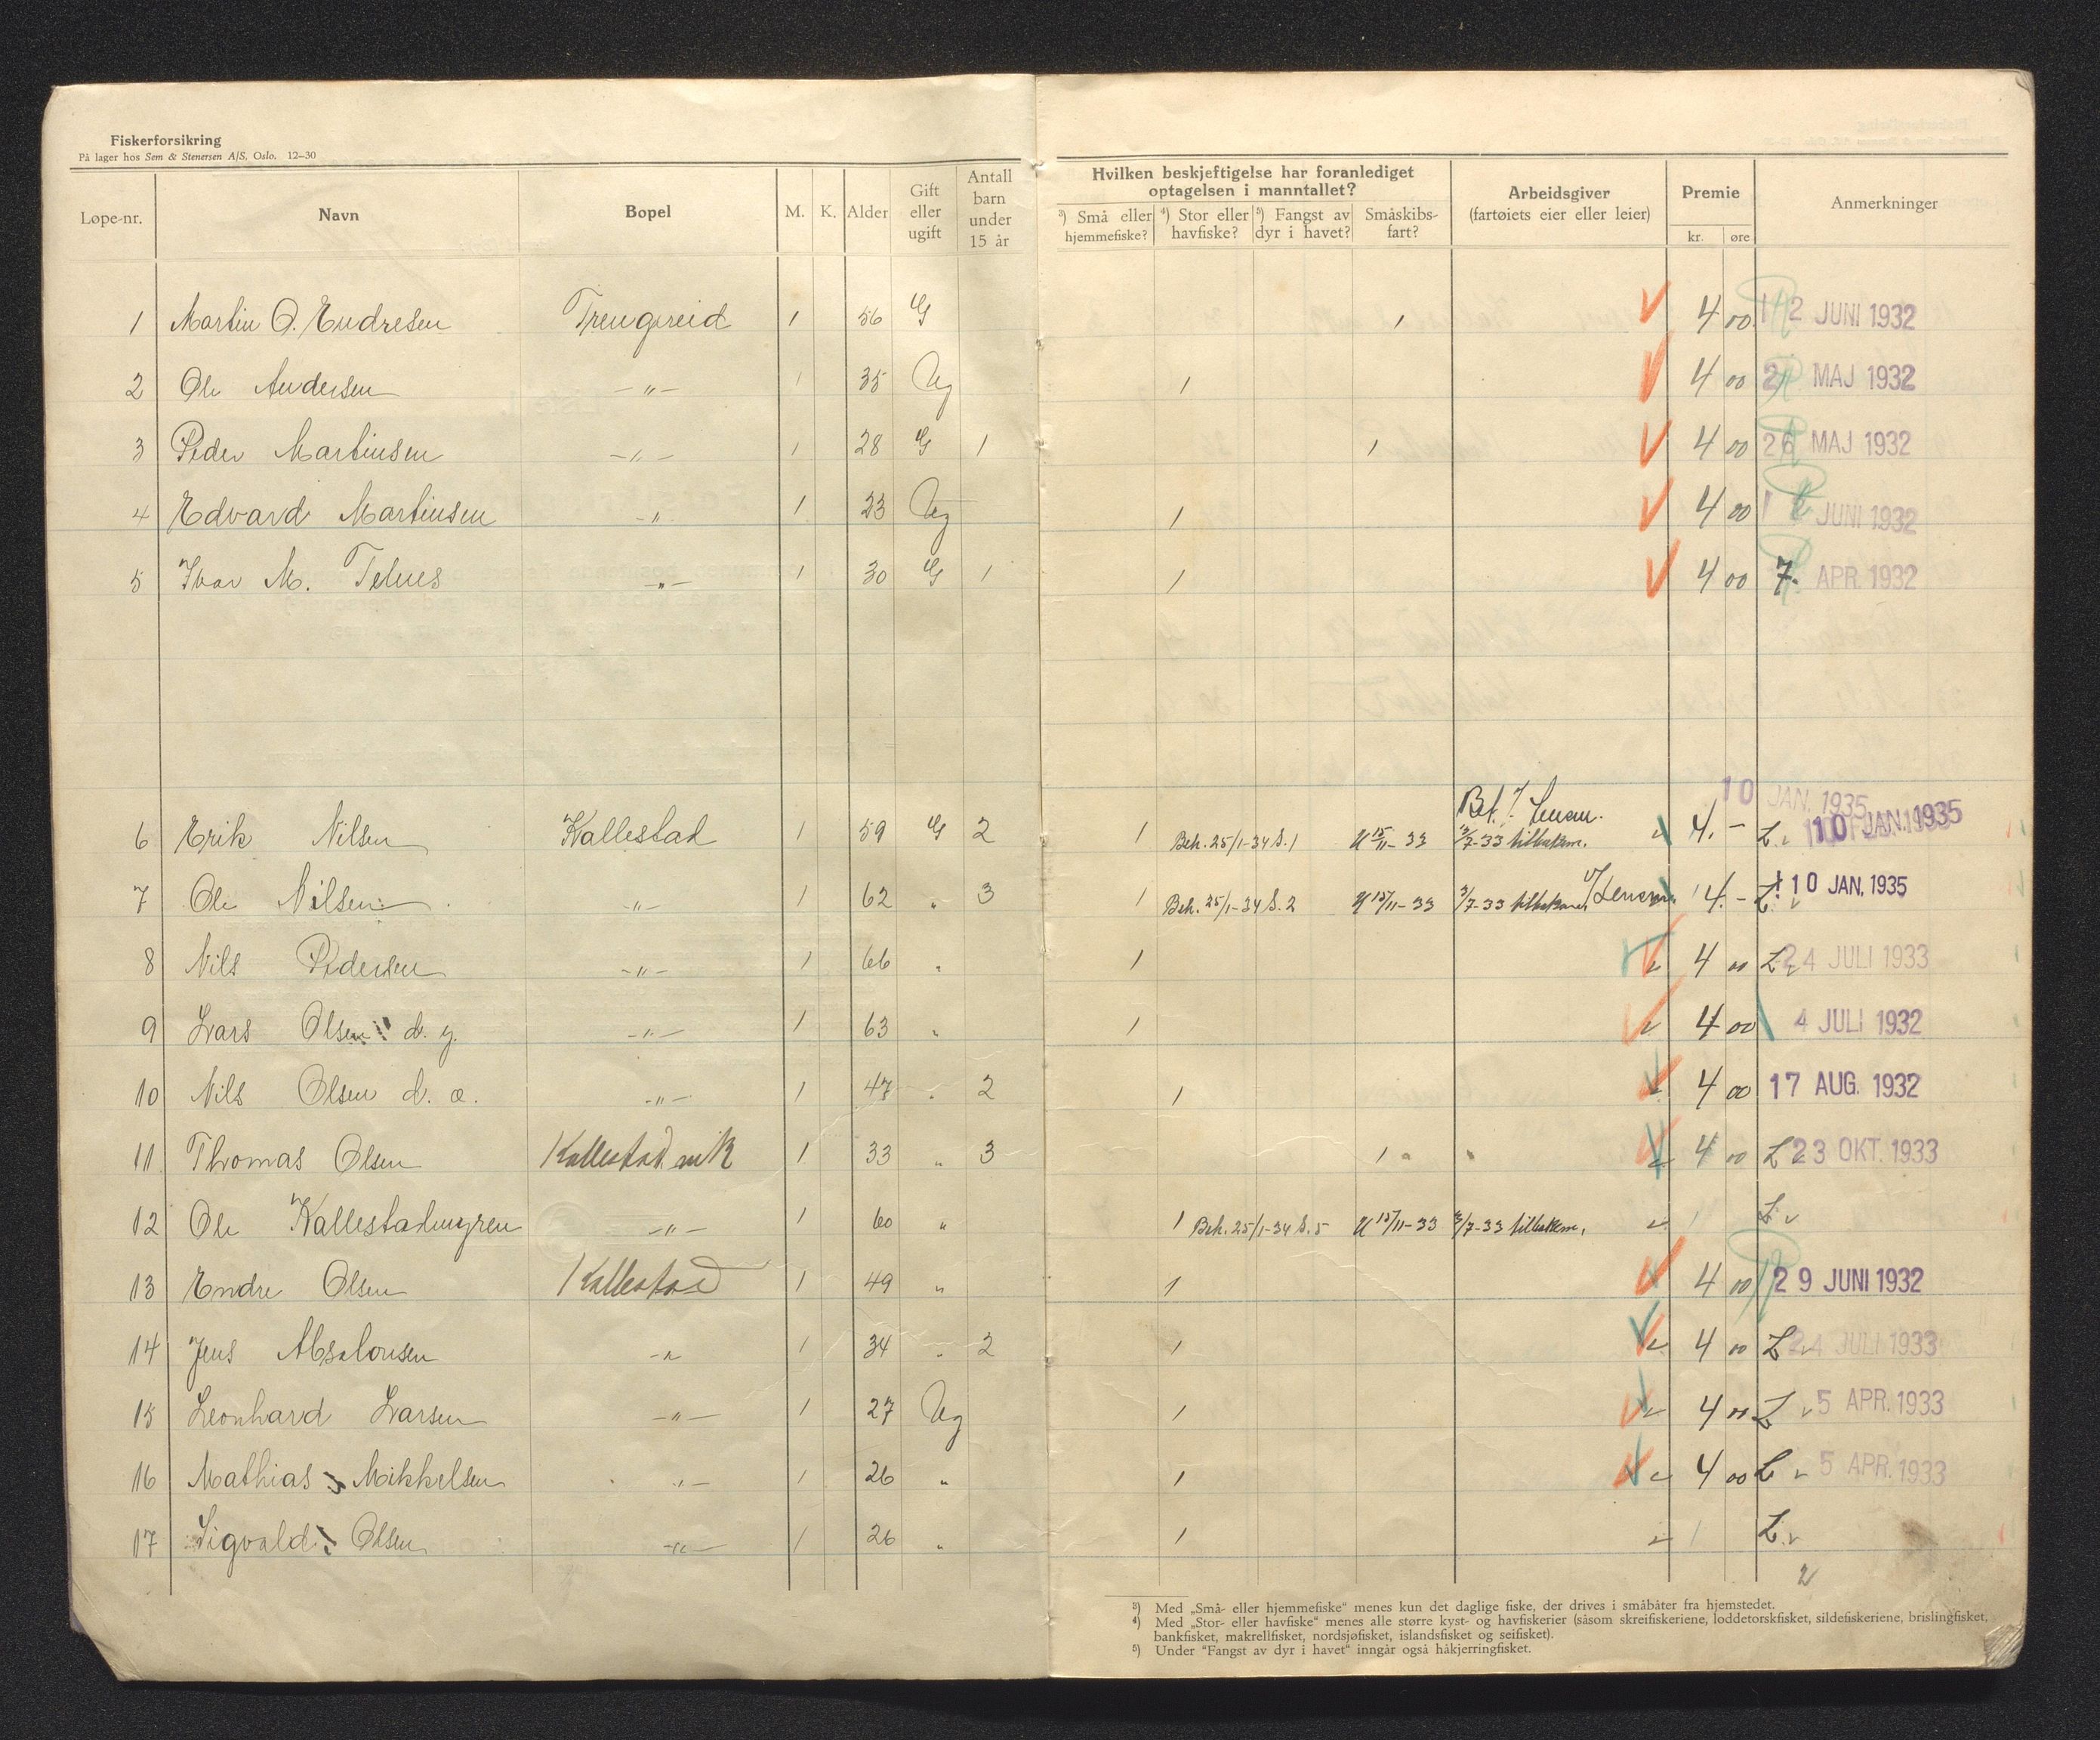 Fiskerforsikring
På lager hos Sem & Stenersen A/S, Oslo. 12–30
Løpe-nr. Navn Bopel M. K. Alder Gift eller ugift Antall barn under 15 år
Hvilken beskjeftigelse har foranlediget optagelsen i manntallet?
³) Små eller hjemmefiske? ⁴) Stor eller havfiske? ⁵) Fangst av dyr i havet? Småskibsfart?
Arbeidsgiver (fartøiets eier eller leier) Premie kr. øre Anmerkninger
1 Martin O. Endresen Trengereid 1 56 G 1 4 00 12 JUNI 1932
2 Ole Andersen –"– 1 35 Ug 1 4 00 2 MAJ 1932
3 Peder Martinsen –"– 1 28 G 1 1 4 00 26 MAJ 1932
4 Edvard Martinsen –" 1 23 Ug 1 4 00 1 JUNI 1932
5 Ivar M. –"– 1 30 G 1 1 4 00 7. APR. 1932
10 JAN. 1935
6 Erik Nilsen Kallestad 1 59 G 2 1 Beh. 25/1-34 S. 1 U 15/11-33 3/7-33 tilbakem. 4.– L. 10 JAN. 1935
7 Ole Nilsen –"– 1 62 " 3 1 Beh. 25/1-34 S. 2 U 15/11-33 3/7-33 4.– L. 10 JAN. 1935
8 Nils Pedersen –"– 1 66 " 1 4 00 L 24 JULI 1933
9 Lars Olsen d. y. –"– 1 63 " 1 4 00 4 JULI 1932
10 Nils Olsen d. e. –"– 1 47 " 2 1 4 00 17 AUG. 1932
11 Thomas Olsen Kallestadvik 1 33 " 3 1 " " 4 00 L 23 OKT. 1933
12 Ole –"– 1 60 " 1 Beh. 25/1-34 S. 5 U 15/11-33 3/7-33 tilbakem. 1 L.
13 Endre Olsen Kallestad 1 49 " 1 4 00 29 JUNI 1932
14 Jens Absalonsen –" 1 34 " 2 1 4 00 L 24 JULI 1933
15 Leonhard Larsen –"– 1 27 Ug 1 4 00 L 5 APR. 1933
16 Mathias Mikkelsen "– 1 26 " 1 4 00 L 5 APR. 1933
17 Sigvald Olsen –"– 1 26 " 1 1 L.
2
³) Med „Små- eller hjemmefiske“ menes kun det daglige fiske, der drives i småbåter fra hjemstedet.
⁴) Med „Stor- eller havfiske“ menes alle større kyst- og havfiskerier (såsom skreifiskeriene, loddetorskfisket, sildefiskeriene, brislingfisket,
bankfisket, makrellfisket, nordsjøfisket, islandsfisket og seifisket).
⁵) Under “Fangst av dyr i havet“ inngår også håkjerringfisket.